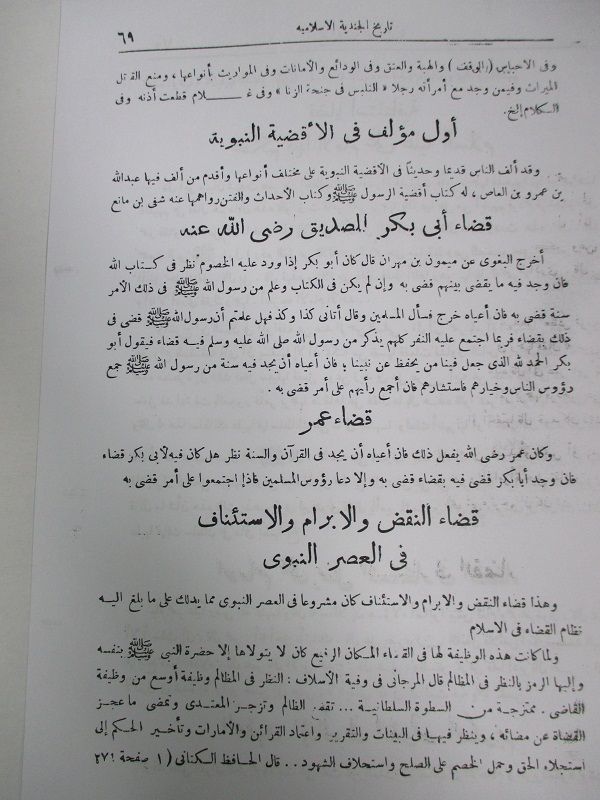 تاريخ الجندية الاسلاميه
٦٩
وفى الاحباس (الوقف) والهبة والعتق وفى الودائع والأمانات وفى المواريث بأنواعها، ومنع القتل
الميراث وفيمن وجد مع امرأته رجلا « التلبس فى جنحة الزنا » وفى غلام قطعت أذنه وفى
السكلام إلخ.
أول مؤلف فى الأقضية النبوية
وقد ألف الناس قديما وحديثا فى الأقضية النبوية على مختلف أنواعها وأقدم من ألف فيها عبدالله
بن عمرو بن العاص، له كتاب أقضية الرسول ﷺ وكتاب الأحداث والفتن رواهما عنه شفى بن ماتع
قضاء أبى بكر الصديق رضى الله عنه
أخرج البغوى عن ميمون بن مهران قال كان أبو بكر إذا ورد عليه الخصوم نظر فى كتاب الله
فان وجد فيه ما يقضى بينهم قضى به وإن لم يكن فى الكتاب وعلم من رسول الله ﷺ فى ذلك الأمر
سنة قضى به فان أعياه خرج فسأل المسلمين وقال أتانى كذا وكذا فهل علمتم أن رسول الله ﷺ قضى فى
ذلك بقضاء فربما اجتمع عليه النفر كلهم يذكر من رسول الله صلى الله عليه وسلم فيه قضاء فيقول أبو
بكر الحمد لله الذى جعل فينا من يحفظ عن نبينا، فان أعياه أن يجد فيه سنة من رسول الله ﷺ جمع
رؤوس الناس وخيارهم فاستشارهم فان أجمع رأيهم على أمر قضى به .
قضاء عمر
وكان عمر رضى الله يفعل ذلك فان أعياه أن يجد فى القرآن والسنة نظر هل كان فيه لابى بكر قضاء
فان وجد أبا بكر قضى فيه بقضاء قضى به وإلا دعا رؤوس المسلمين فاذا اجتمعوا على أمر قضى به
قضاء النقض والابرام والاستئناف
فى العصر النبوى
وهذا قضاء النقض والابرام والاستئناف كان مشروعا فى العصر النبوى مما يدلك على ما بلغ اليه
نظام القضاء فى الاسلام
ولما كانت هذه الوظيفة لها فى القضاء المكان الرفيع كان لا يتولاها إلا حضرة النبى ﷺ بنفسه
وإليها الرمز بالنظر فى المظالم قال المرجانى فى وفية الأسلاف : النظر فى المظالم وظيفة أوسع من وظيفة
القاضى . ممتزجة من السطوة السلطانية ... تقهر الظالم وتزجر المعتدى وتمضى ما عجز
القضاة عن مضائه، وينظر فيها فى البينات والتقرير واعتماد القرائن والأمارات وتأخير الحكم إلى
استجلاء الحق وحمل الخصم على الصلح واستحلاف الشهود .. قال الحافظ الكتانى ( ١ صفحة ٢٧١